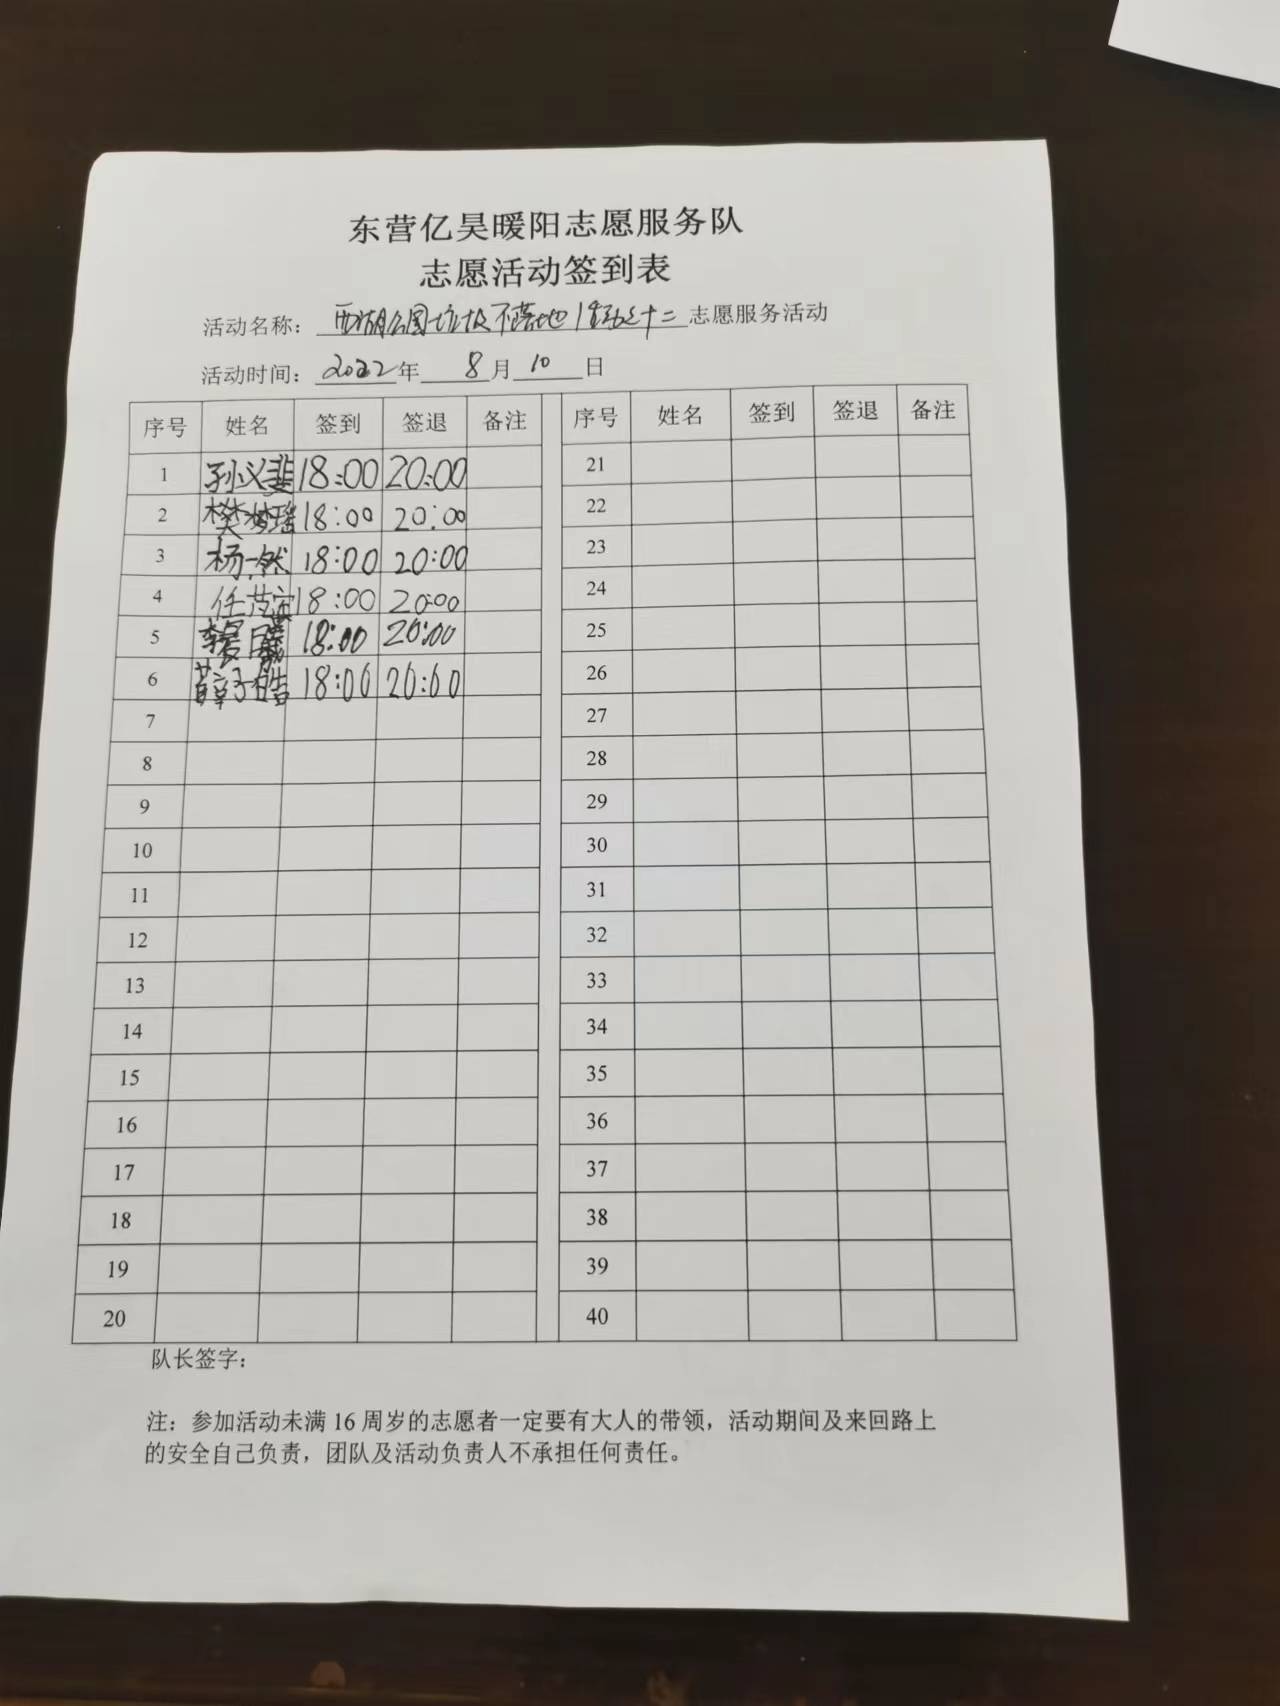 东营亿昊暖阳志愿服务队
志愿活动签到表
活动名称：西湖公园垃圾不落地 志愿服务活动
活动时间：2022年 8月10日
序号 姓名 签到 签退 备注 序号 姓名 签到 签退 备注
1 孙义斐 18:00 20:00 21
2 樊梦瑶 18:00 20:00 22
3 杨一然 18:00 20:00 23
4 任 18:00 20:00 24
5 18:00 20:00 25
6 薛子皓 18:00 20:00 26
7 27
8 28
9 29
10 30
11 31
12 32
13 33
14 34
15 35
16 36
17 37
18 38
19 39
20 40
队长签字：
注：参加活动未满 16 周岁的志愿者一定要有大人的带领，活动期间及来回路上
的安全自己负责，团队及活动负责人不承担任何责任。